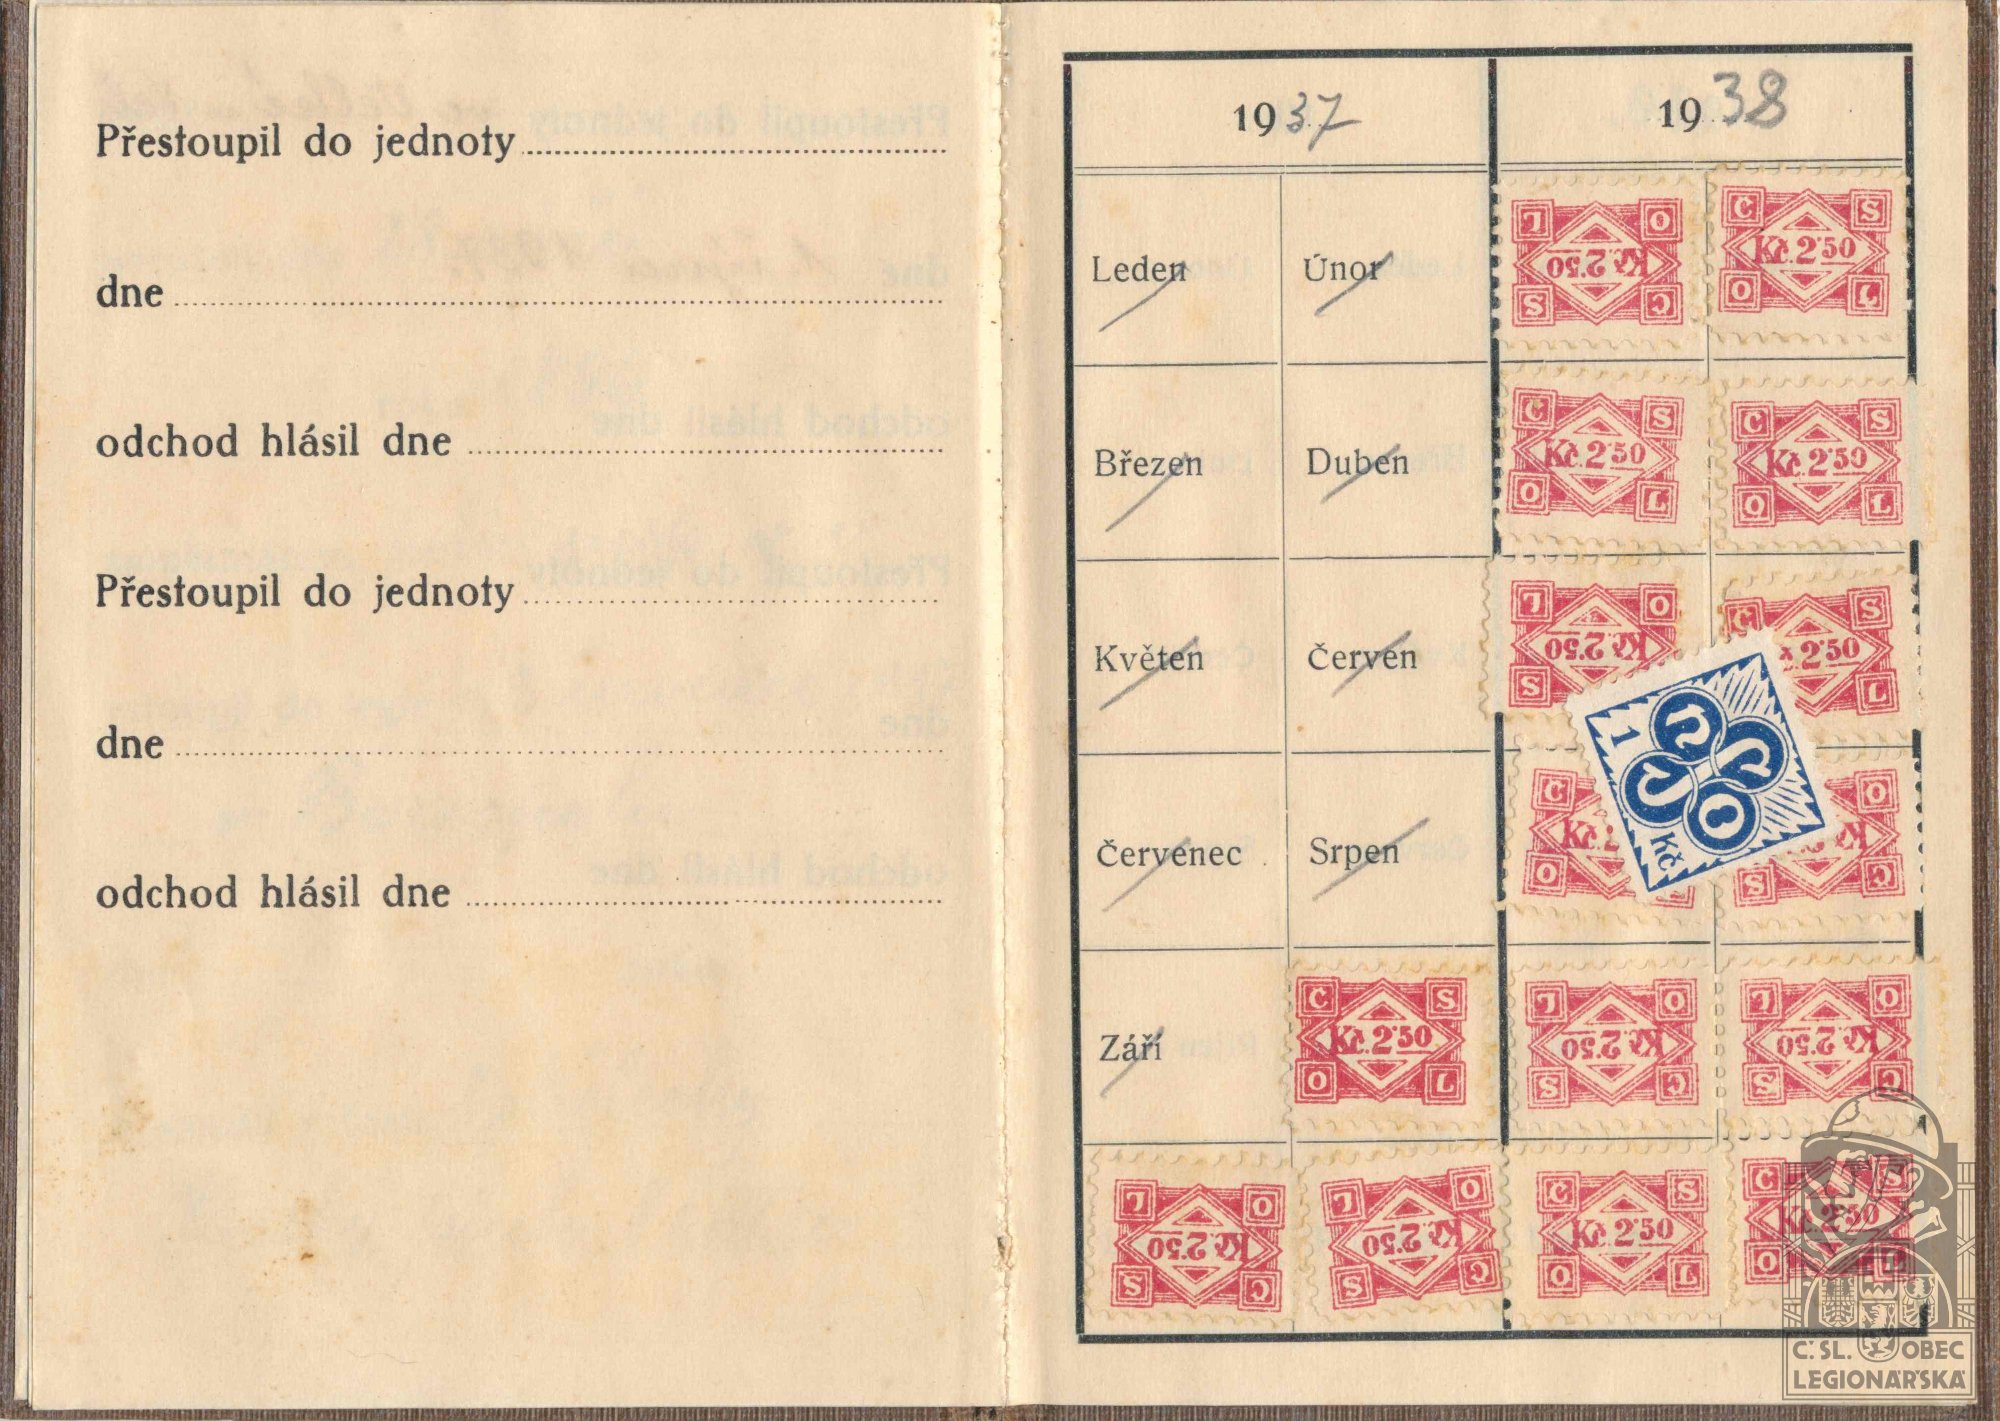 Přestoupil do jednoty
dne
odchod hlásil dne
Přestoupil do jednoty
dne
odchod hlásil dne
1937
1938
Leden Únor
J O Kč 2·50 S Č
Č S Kč. 2·50 O L
Březen Duben
Č S Kč. 2·50 O L
Č S Kč. 2·50 O L
Květen Červen
J O Kč 2·50 S Č
Č S 2·50 L
Červenec Srpen
Č Kč. O
O S Č
1 Kč
Září
Č S Kč. 2·50 O L
J O Kč 2·50 S Č
J O Kč 2·50 S Č
J O Kč 2·50 S Č
J O Kč 2·50 S Č
Č S Kč 2·50 O L
Č S Kč 2·50 O L
Č SL. OBEC
LEGIONÁŘSKÁ